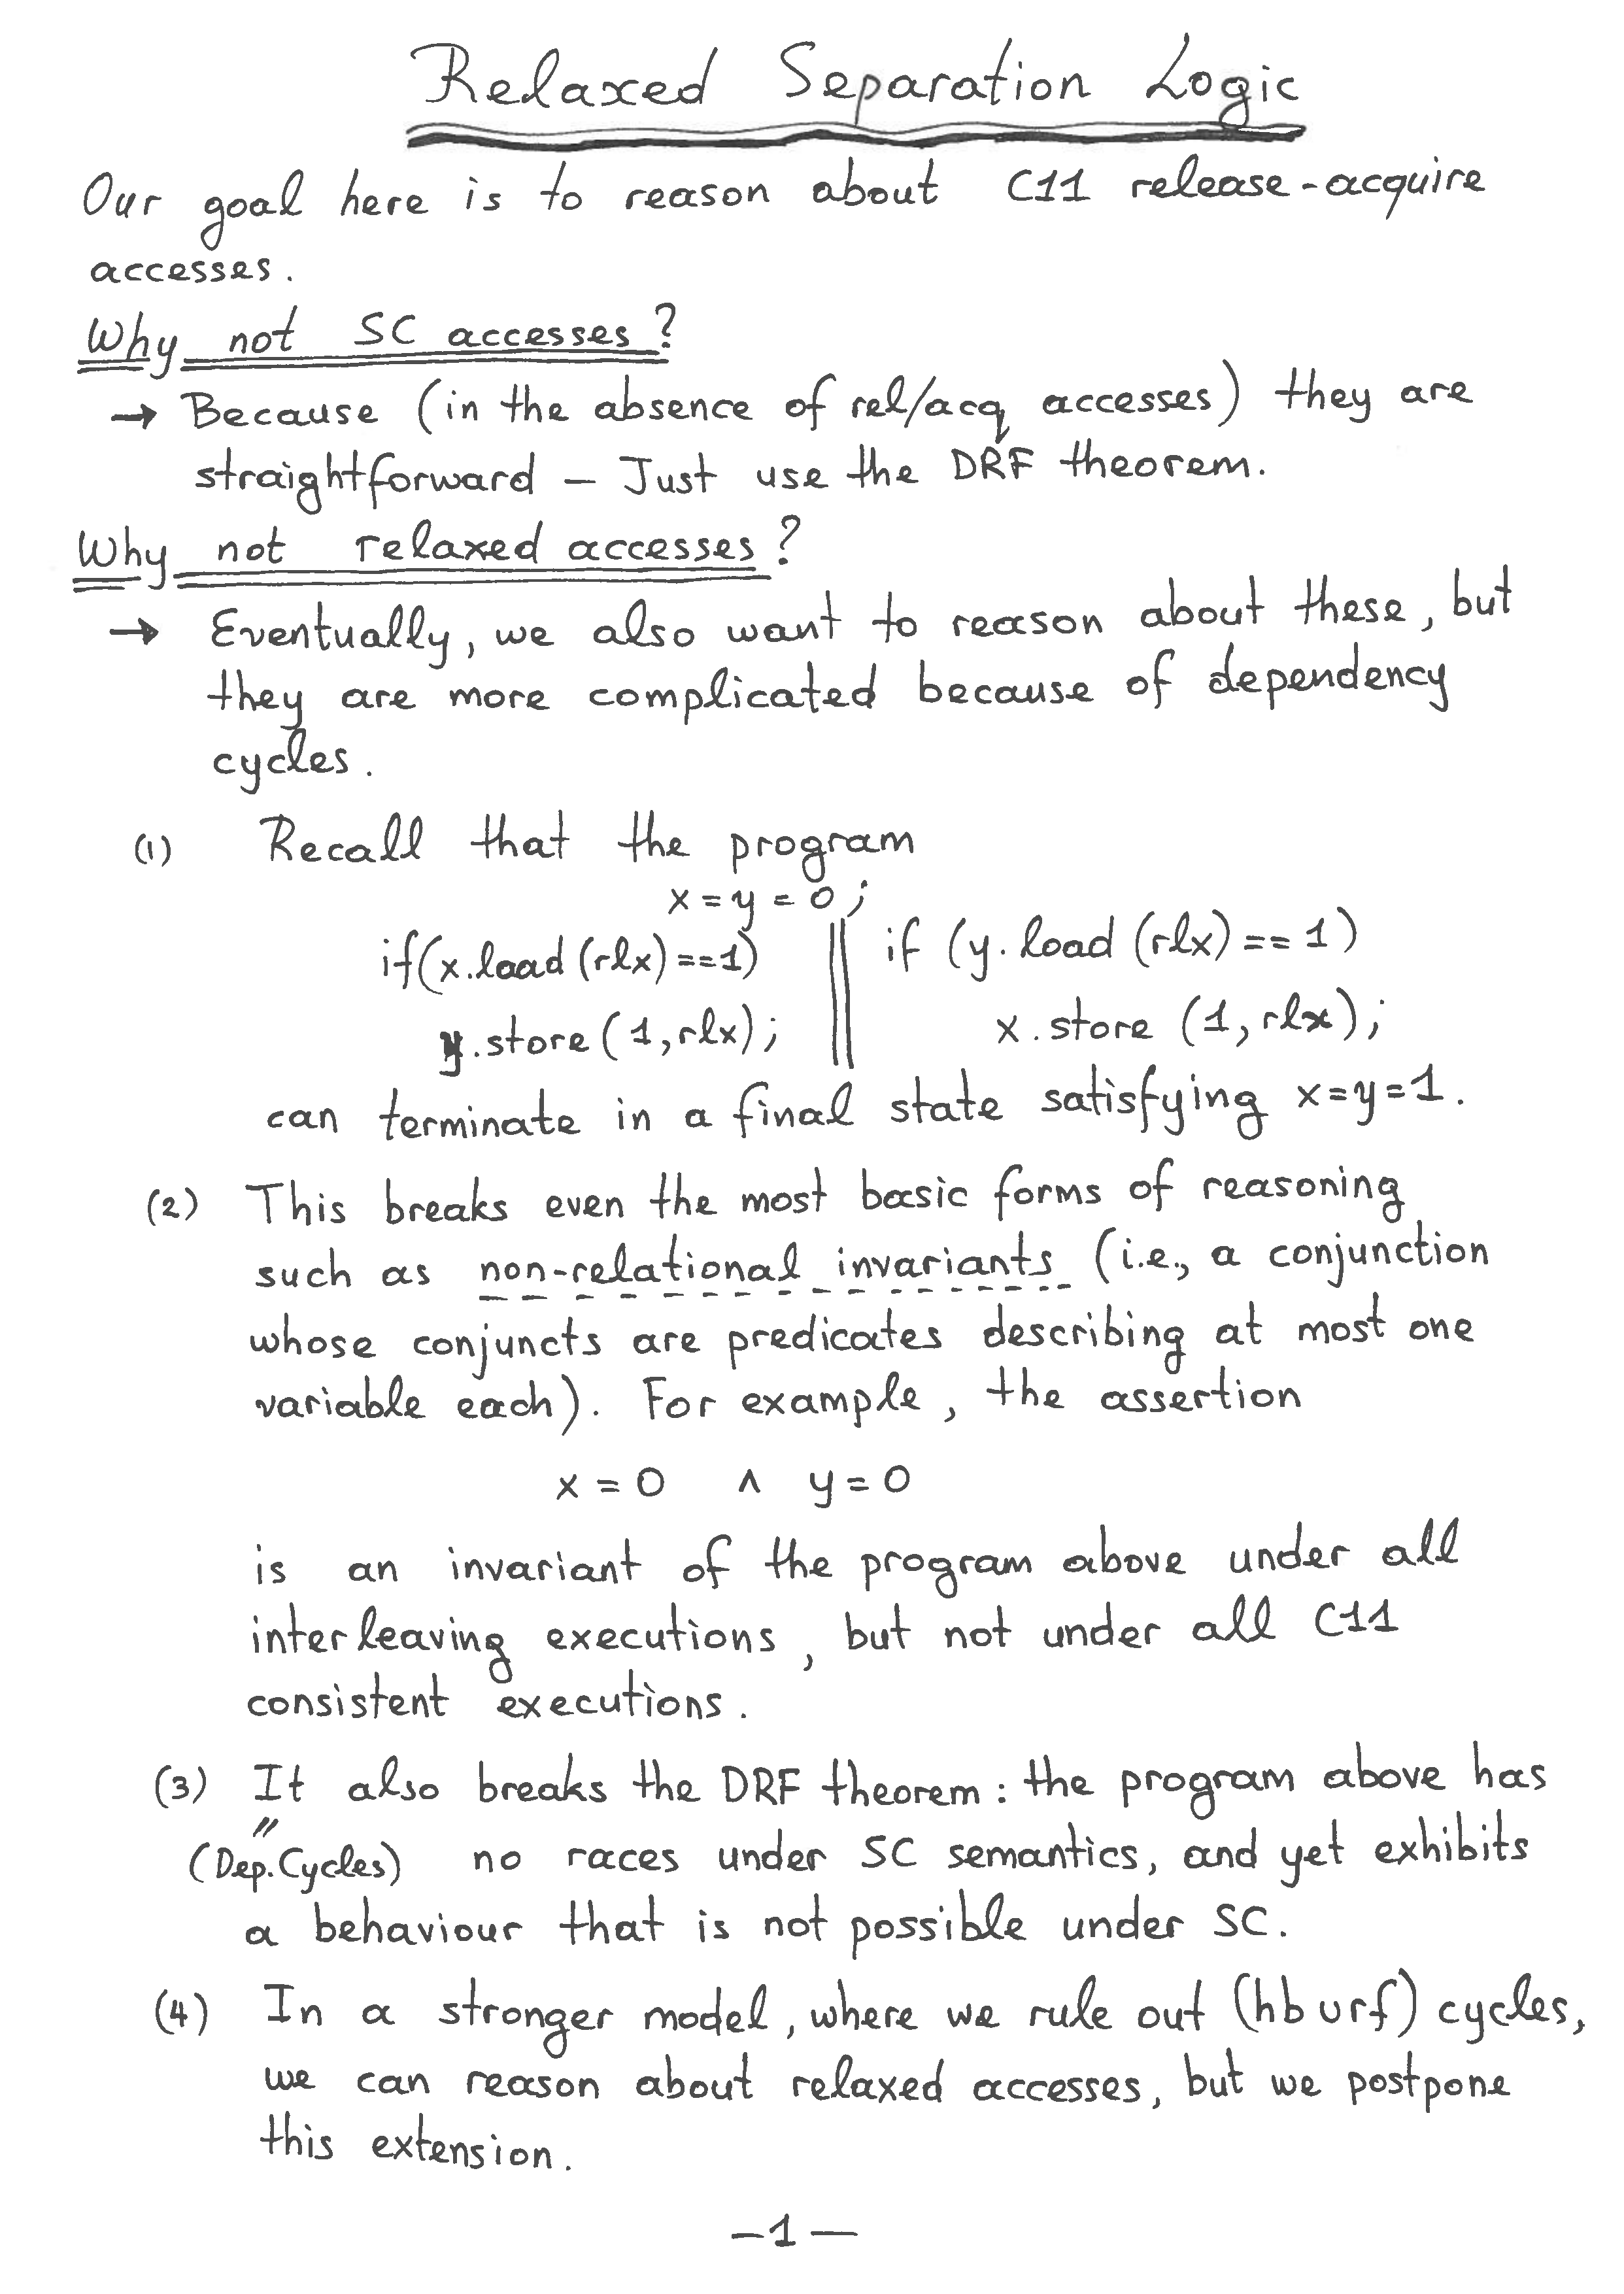 Relaxed Separation Logic
Our goal here is to reason about C11 release-acquire
accesses.
Why not SC accesses?
→ Because (in the absence of rel/acq accesses) they are
straightforward – Just use the DRF theorem.
Why not relaxed accesses?
→ Eventually, we also want to reason about these, but
they are more complicated because of dependency
cycles.
(1) Recall that the program
x = y = 0;
if(x.load(rlx)==1) || if (y.load(rlx)==1)
y.store(1,rlx); || x.store(1,rlx);
can terminate in a final state satisfying x=y=1.
(2) This breaks even the most basic forms of reasoning
such as non-relational invariants (i.e., a conjunction
whose conjuncts are predicates describing at most one
variable each). For example, the assertion
x = 0 ∧ y = 0
is an invariant of the program above under all
interleaving executions, but not under all C11
consistent executions.
(3) It also breaks the DRF theorem: the program above has
(Dep.Cycles) no races under SC semantics, and yet exhibits
a behaviour that is not possible under SC.
(4) In a stronger model, where we rule out (hb ∪ rf) cycles,
we can reason about relaxed accesses, but we postpone
this extension.
—1—